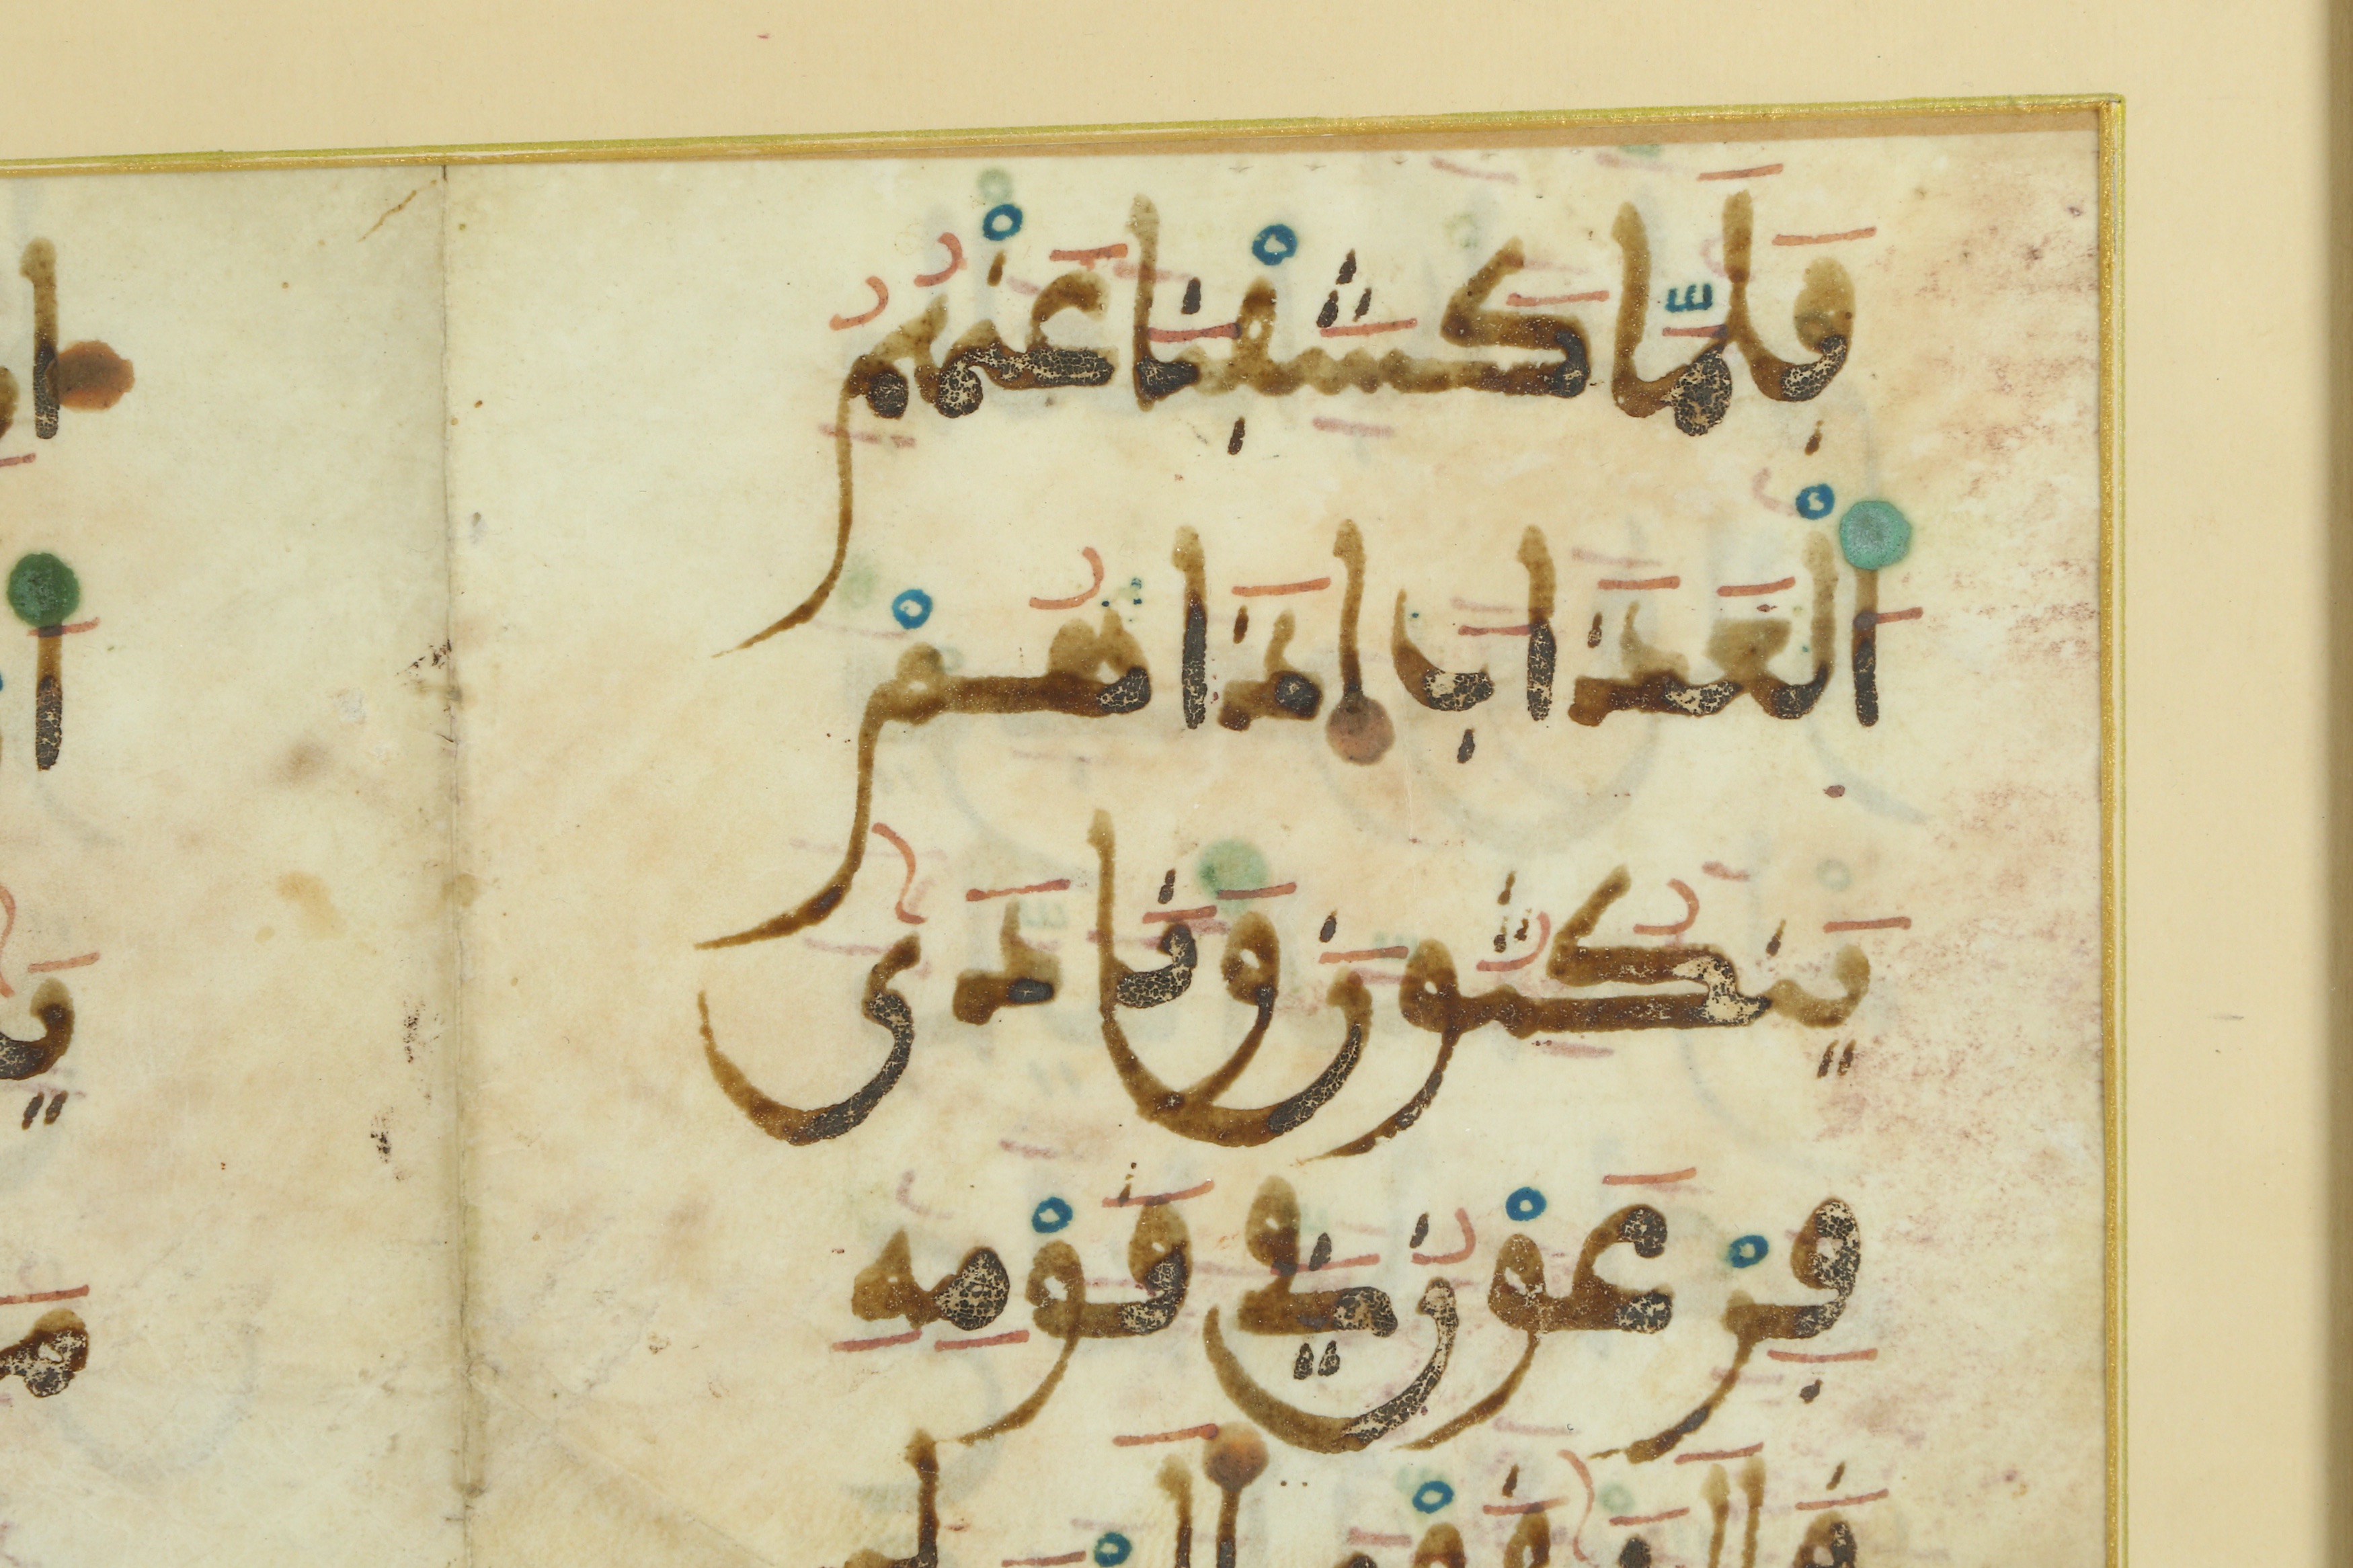 فَلَمَّا كَشَفْنَا عَنْهُمُ
اَلْعَذَابَ إِذَا هُمْ
يَنكُثُونَ وَنَادَىٰ
فِرْعَوْنُ فِي قَوْمِهِ
قَالَ يَٰقَوْمِ أَلَيْسَ